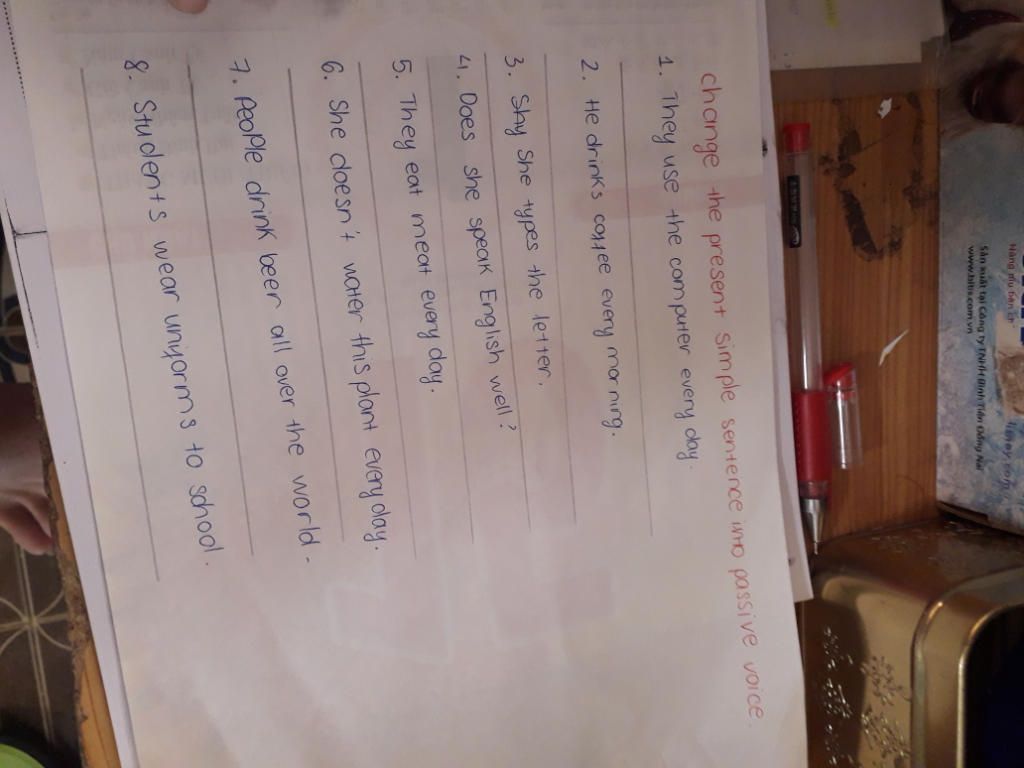 change the present simple sentence into passive voice.
1. They use the computer every day.
2. He drinks coffee every morning.
3. Shy She types the letter.
4. Does she speak English well?
5. They eat meat every day.
6. She doesn't water this plant every day.
7. People drink beer all over the world.
8. Students wear uniforms to school.
Sản xuất tại Công ty TNHH Bình Tân Đồng Nai